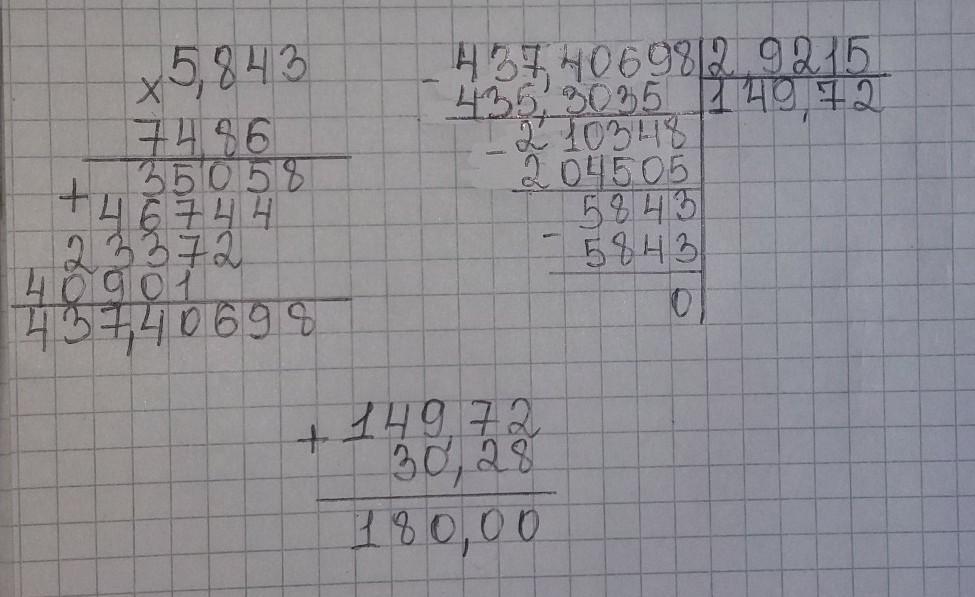 × 5,843
7486
+ 35058
46744
23372
40901
437,40698
- 437,40698 | 2 9215
435,3035 | 149,72
- 210348
204505
- 5843
5843
0
+ 149,72
30,28
180,00